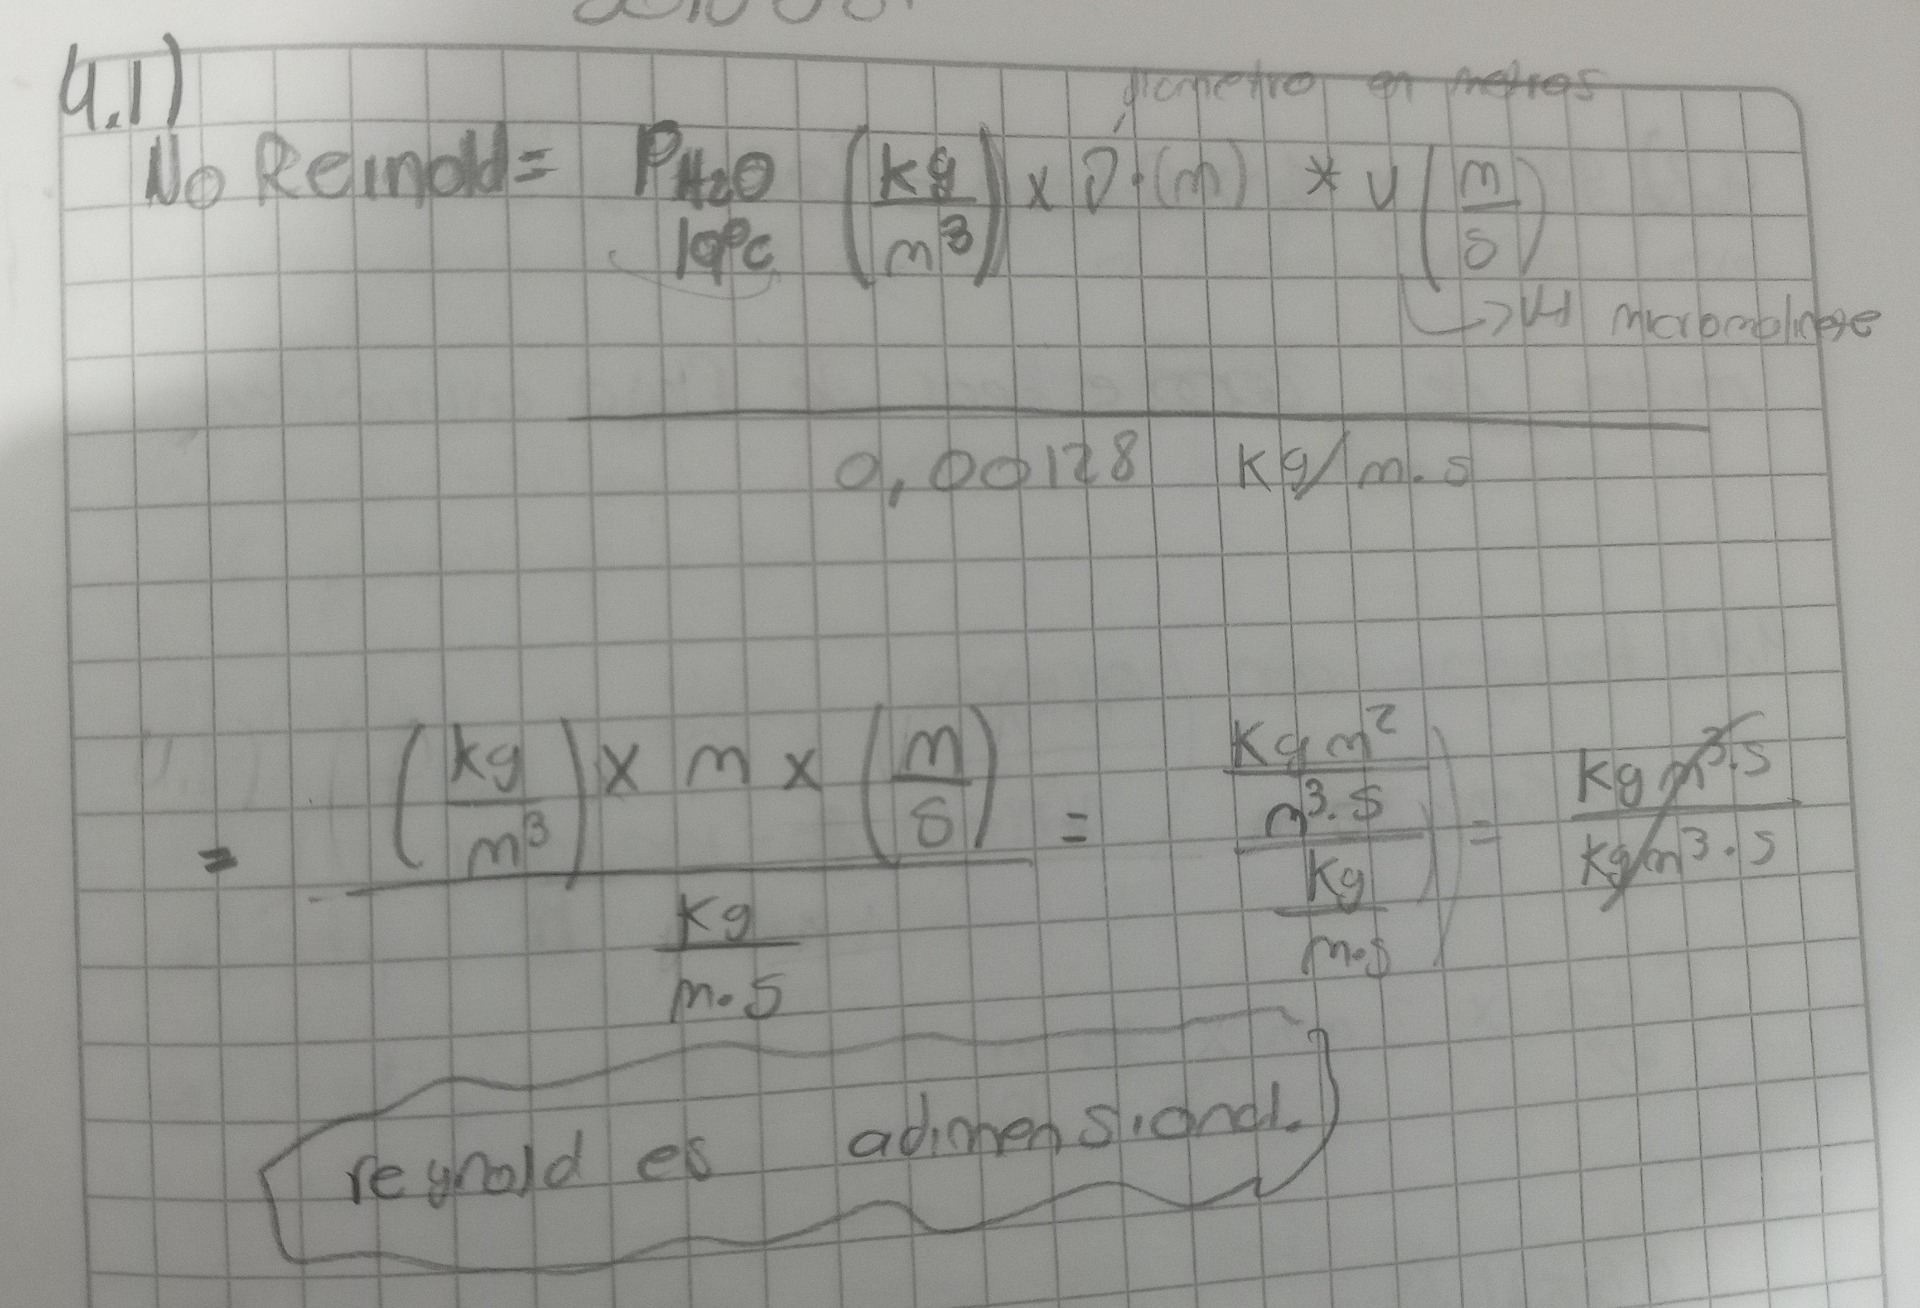 4.1)
diametro en metros
No Reinold = PH2O 10°C (kg/m³) x D.(m) * v (m/s)
0,00128 kg/m.s
= (kg/m³) x m x (m/s) / kg/m.s = kg m²/m³.s / kg/m.s = kg m³.s / kg m³.s
reynold es adimensional.